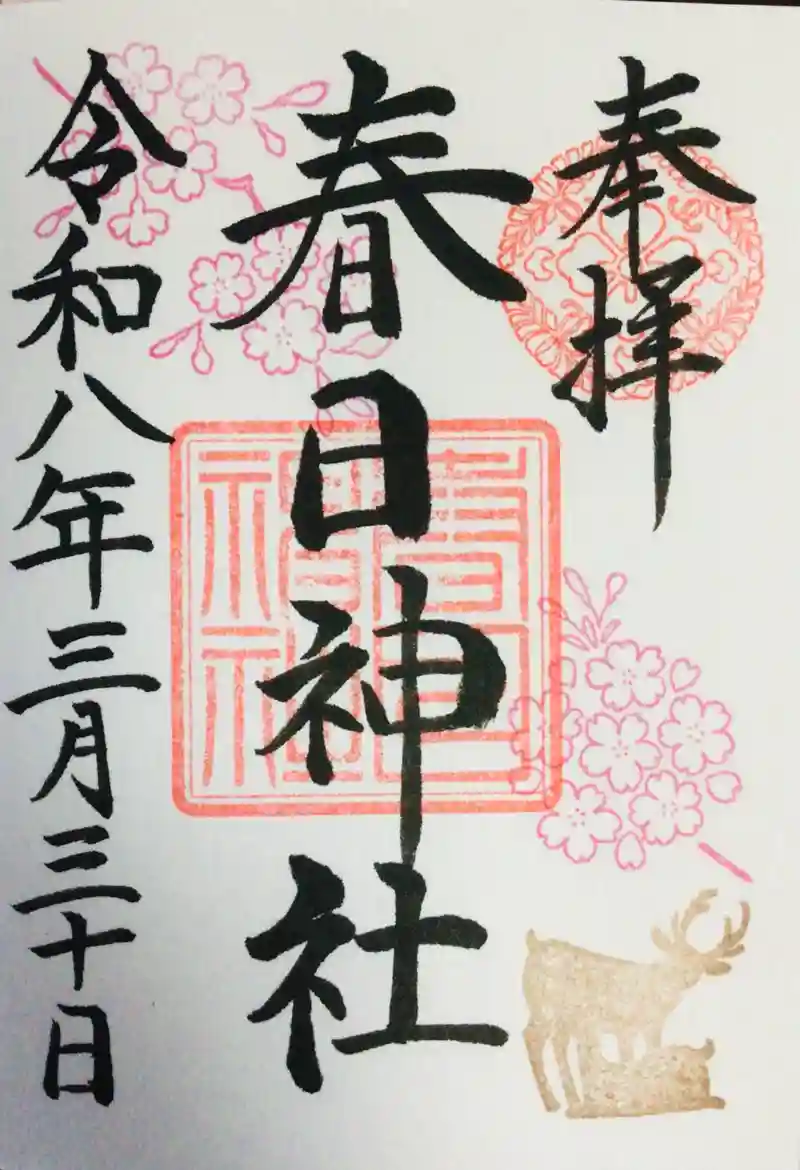 奉拝
春日神社
春日神社
令和八年三月三十日